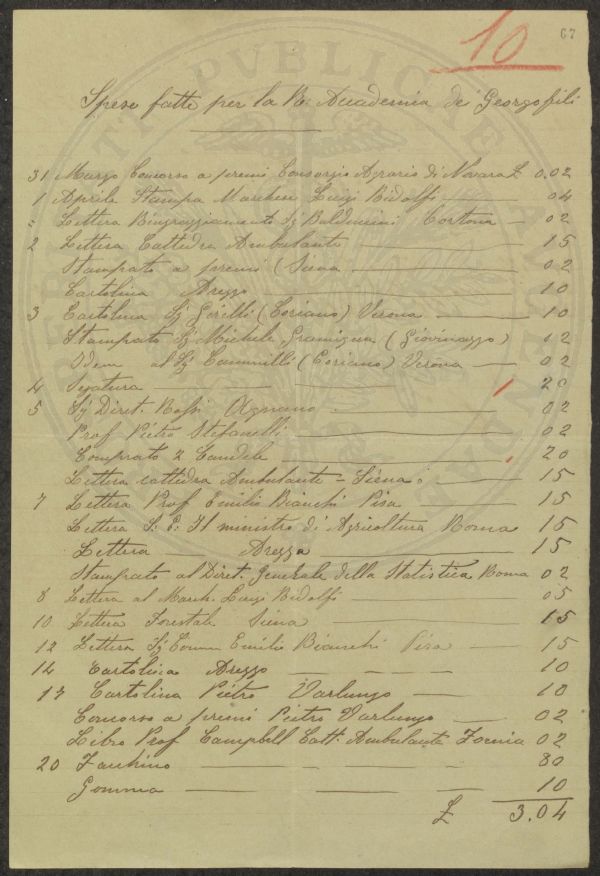 10
67
Spese fatte per la R. Accademia de' Georgofili
31 Marzo Concorso a premi Consorzio Agrario di Novara £ 0.02
1 Aprile Stampa Marchese Luigi Ridolfi 04
" Lettera Ringraziamento Sj Baldimini Cortona 02
2 Lettera Cattedra Ambulante 15
Stampato a premi (Siena 02
Cartolina Arezzo 10
3 Cartolina Sj (Coriano) Verona 10
Stampato Sj Michele Gramigna (Giovinazzo) 02
Idem al Sj (Coriano) Verona 02
4 20
5 Sj Diret. Rossi Agnano 02
Prof Pietro Stefanelli 02
Comprato 2 Candele 20
Lettera cattedra Ambulante - Siena 15
7 Lettera Prof Emilio Bianchi Pisa 15
Lettera S. E. Il ministro di Agricoltura Roma 15
Lettera Arezzo 15
Stampato al Diret. Generale della Statistica Roma 02
8 Lettera al March. Luigi Ridolfi 05
10 Lettera Forestale Siena 15
12 Lettera Sj Comm Emilio Bianchi Pisa 15
14 Cartolina Arezzo 10
17 Cartolina Pietro Varlungo 10
Concorso a premi Pietro Varlungo 02
Libro Prof Campbell Catt. Ambulante 02
20 Facchino 80
Gomma 10
£ 3.04